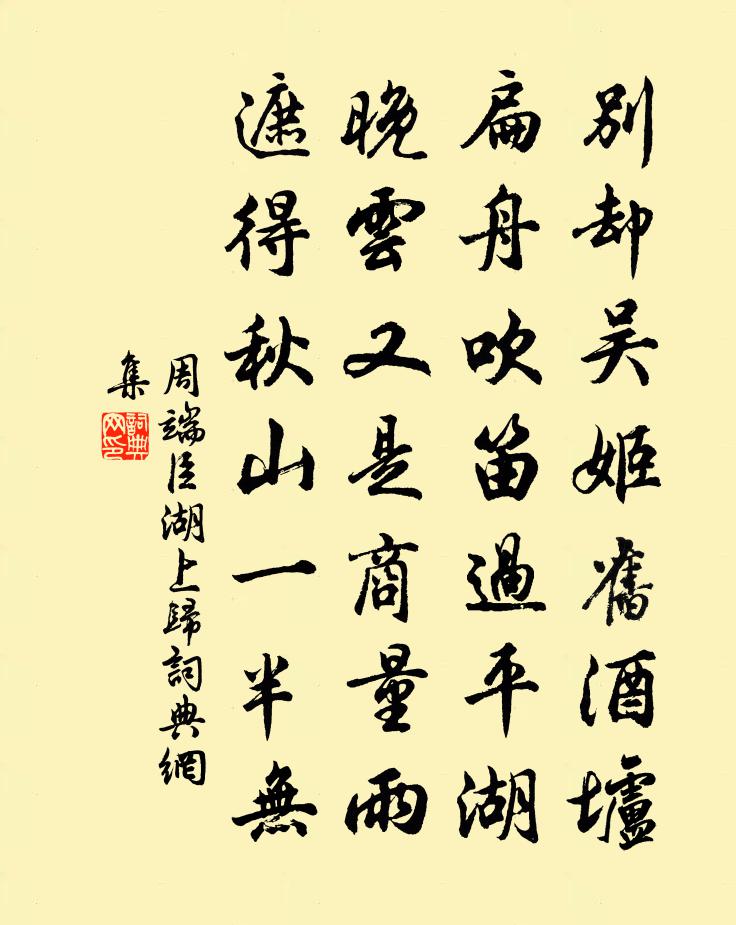 別却吴姬舊酒壚
扁舟吹笛過平湖
晚雲又是商量雨
遮得秋山一半無
周端臣湖上歸詞典網
集
詞典
网印